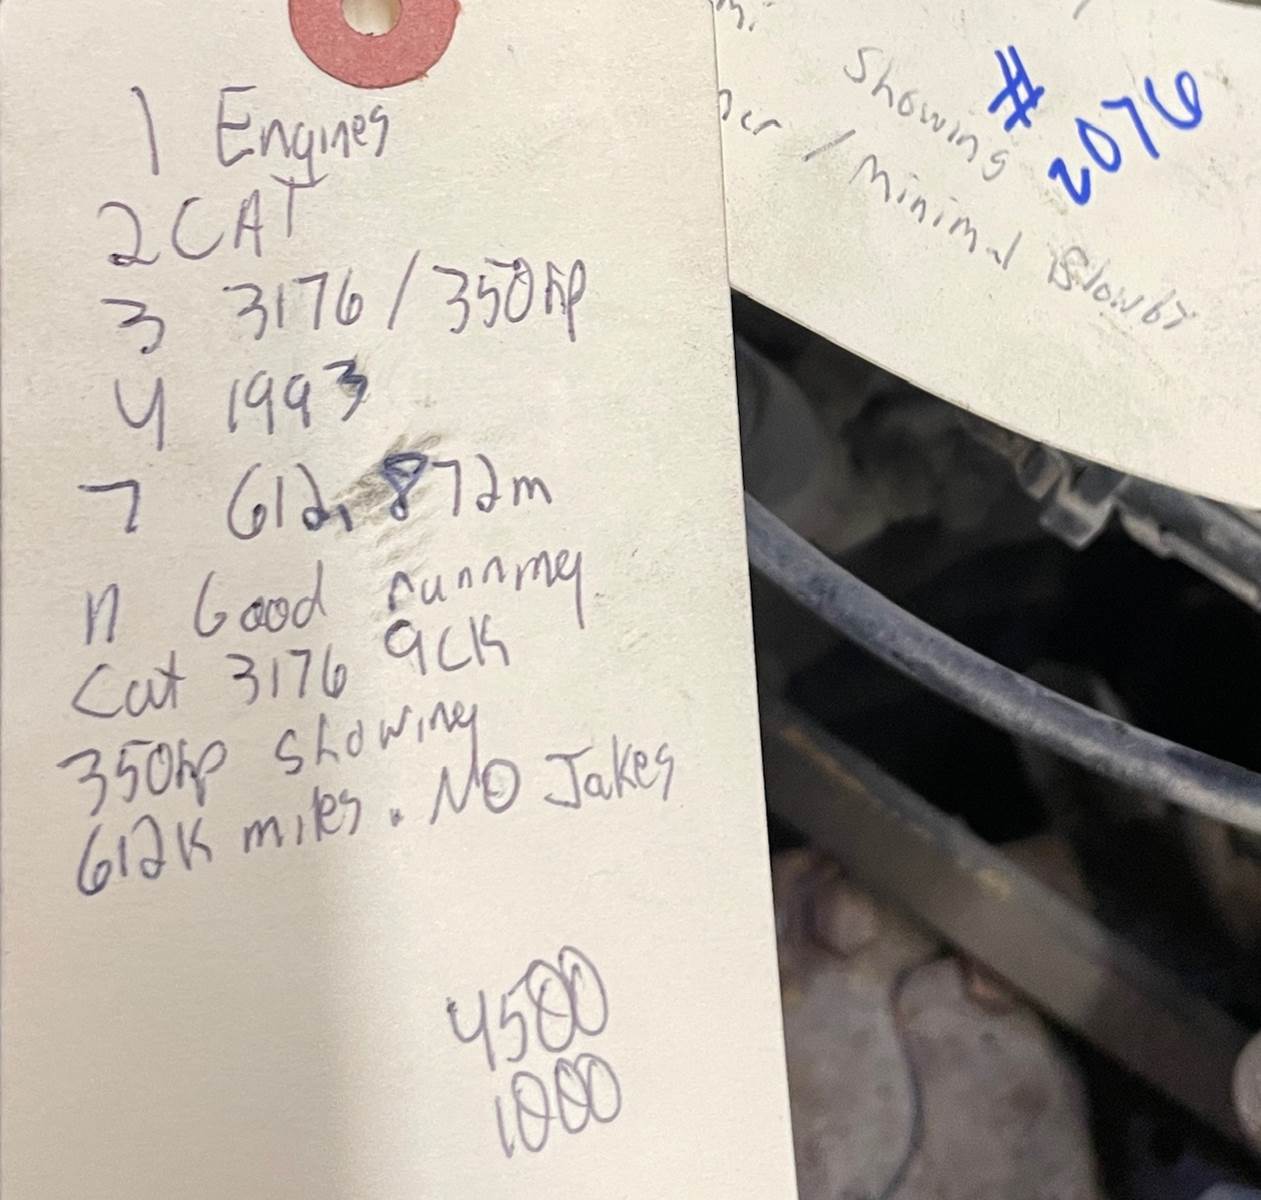 1 Engines
2 CAT
3 3176 / 350hp
4 1993
7 612,872m
n Good running
Cat 3176 9CK
350hp showing
612K miles. NO Jakes
4500
1000
# 2076
Showing
/ Minimal Blowby